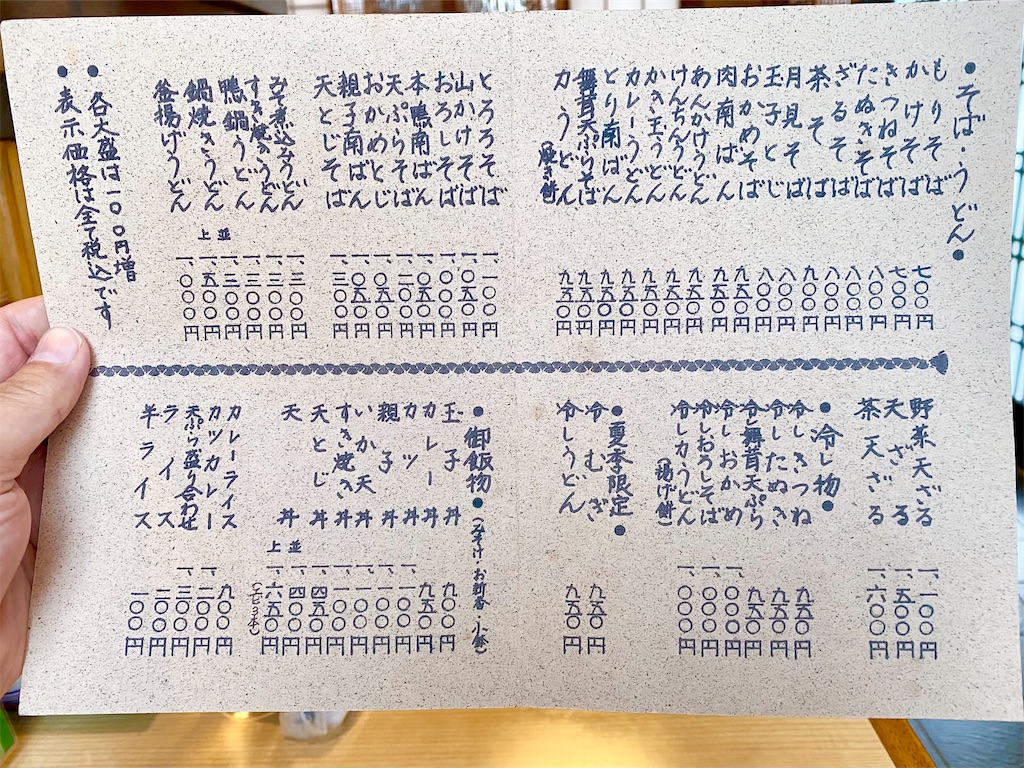 ●そば・うどん●
もりそば 七〇〇円
かけそば 七〇〇円
きつねそば 八〇〇円
たぬきそば 八〇〇円
ざるそば 八〇〇円
茶そば 九〇〇円
月見そば 八〇〇円
玉子とじ 八〇〇円
おかめそば 九五〇円
肉南ばん 九五〇円
あんかけうどん 九五〇円
けんちんうどん 九五〇円
かき玉うどん 九五〇円
カレーうどん 九五〇円
とり南ばん 九五〇円
舞茸天ぷらそば 九五〇円
力うどん(焼き餅) 九五〇円
とろろそば 一、一〇〇円
山かけそば 一、〇五〇円
おろしそば 一、〇〇〇円
本鴨南ばん 一、〇五〇円
天ぷらそば 一、二〇〇円
おかめとじ 一、〇五〇円
親子南ばん 一、〇五〇円
天とじそば 一、三〇〇円
みそ煮込みうどん 一、三〇〇円
すき焼きうどん 一、三〇〇円
鴨鍋うどん 一、三〇〇円
鍋焼きうどん 並 一、三〇〇円
上 一、五〇〇円
釜揚げうどん 一、〇〇〇円
●各大盛は一〇〇円増
●表示価格は全て税込です
野菜天ざる 一、一〇〇円
天ざる 一、五〇〇円
茶天ざる 一、六〇〇円
●冷し物●
冷しきつね 九五〇円
冷したぬき 九五〇円
冷し舞茸天ぷら 九五〇円
冷しおかめ 一、〇〇〇円
冷しおろしそば 一、〇〇〇円
冷し力うどん(揚げ餅) 一、〇〇〇円
●夏季限定●
冷むぎ 九五〇円
冷しうどん 九五〇円
●御飯物●(みそ汁・お新香・小鉢)
玉子丼 九〇〇円
カレー丼 九五〇円
カツ丼 一、一〇〇円
親子丼 一、一〇〇円
いか天丼 一、一〇〇円
すき焼き丼 一、一〇〇円
天とじ丼 一、四五〇円
天丼 並 一、四〇〇円
上 一、六五〇円(エビ3本)
カレーライス 九〇〇円
カツカレー 一、二〇〇円
天ぷら盛り合わせ 一、三〇〇円
ライス 二〇〇円
半ライス 一〇〇円